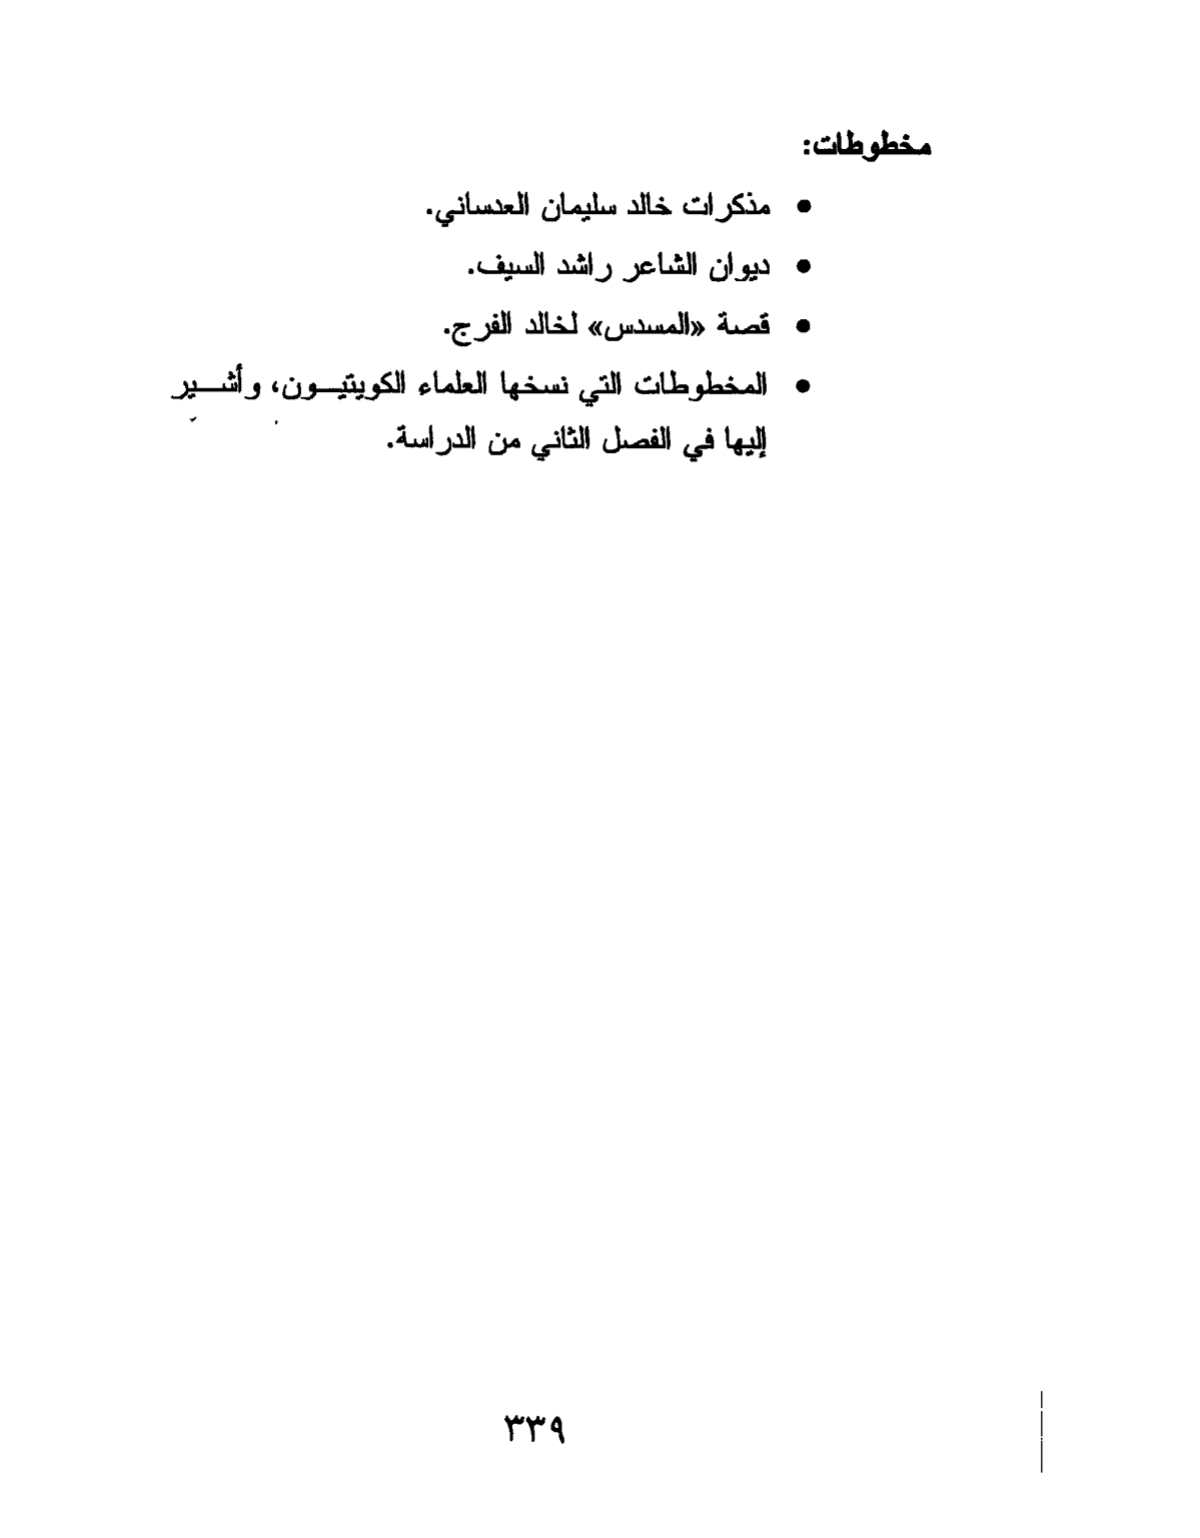 مخطوطات:
• مذكرات خالد سليمان العدساني.
• ديوان الشاعر راشد السيف.
• قصة «المسدس» لخالد الفرج.
• المخطوطات التي نسخها العلماء الكويتيون، وأشير
إليها في الفصل الثاني من الدراسة.
٣٣٩